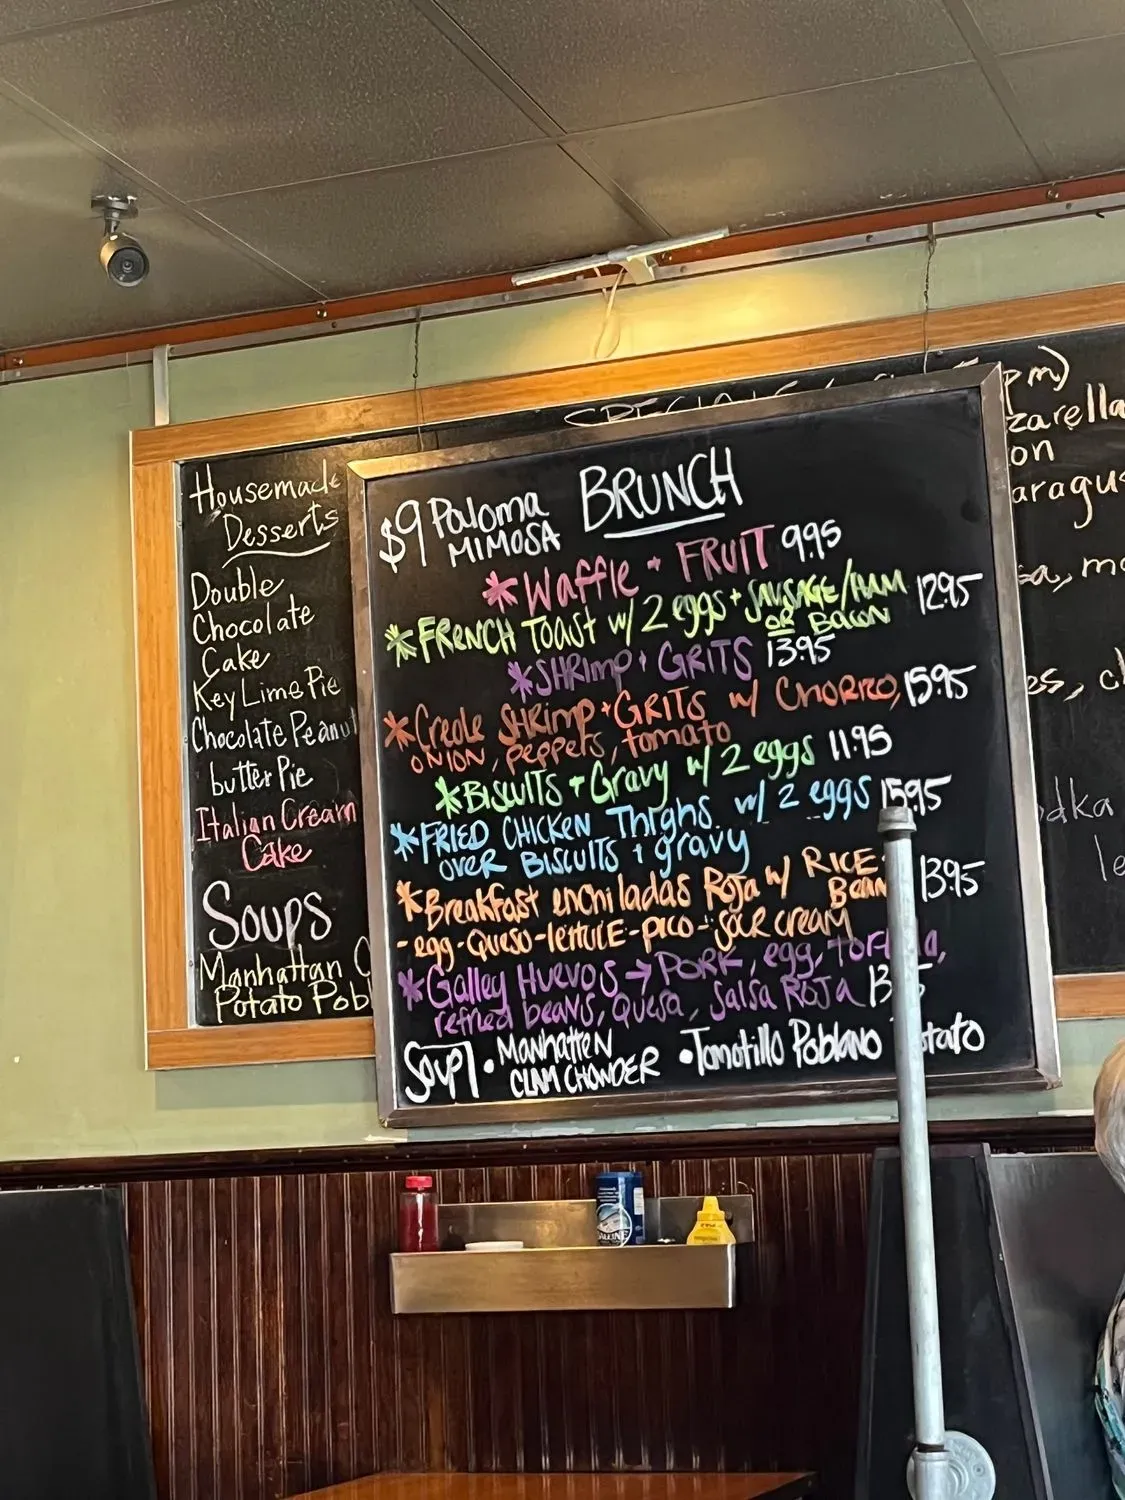 Housemade
Desserts
Double
Chocolate
Cake
Key Lime Pie
Chocolate Peanut
butter Pie
Italian Cream
Cake
Soups
Manhattan
Potato Pobl
SPECIALS
$9 Paloma
MIMOSA
BRUNCH
*Waffle + FRUIT 9.95
*FRENCH TOAST w/ 2 eggs + SAUSAGE/HAM 12.95
OR BACON
*SHRIMP + GRITS 13.95
*Creole SHRIMP + GRITS w/ CHORIZO, 15.95
ONION, peppers, tomato
*BISCUITS + Gravy w/ 2 eggs 11.95
*FRIED CHICKEN Thighs w/ 2 eggs 15.95
OVER BISCUITS + gravy
*Breakfast enchiladas Roja w/ RICE 13.95
- egg - Queso - lettuce - pico - sour cream
*Galley Huevos → PORK, egg,
refried beans, Quesa, Salsa Roja
Soup • Manhatten
CLAM CHOWDER
• Tomotillo Poblano
pm)
zarella
on
aragus
es, ch
dka
le